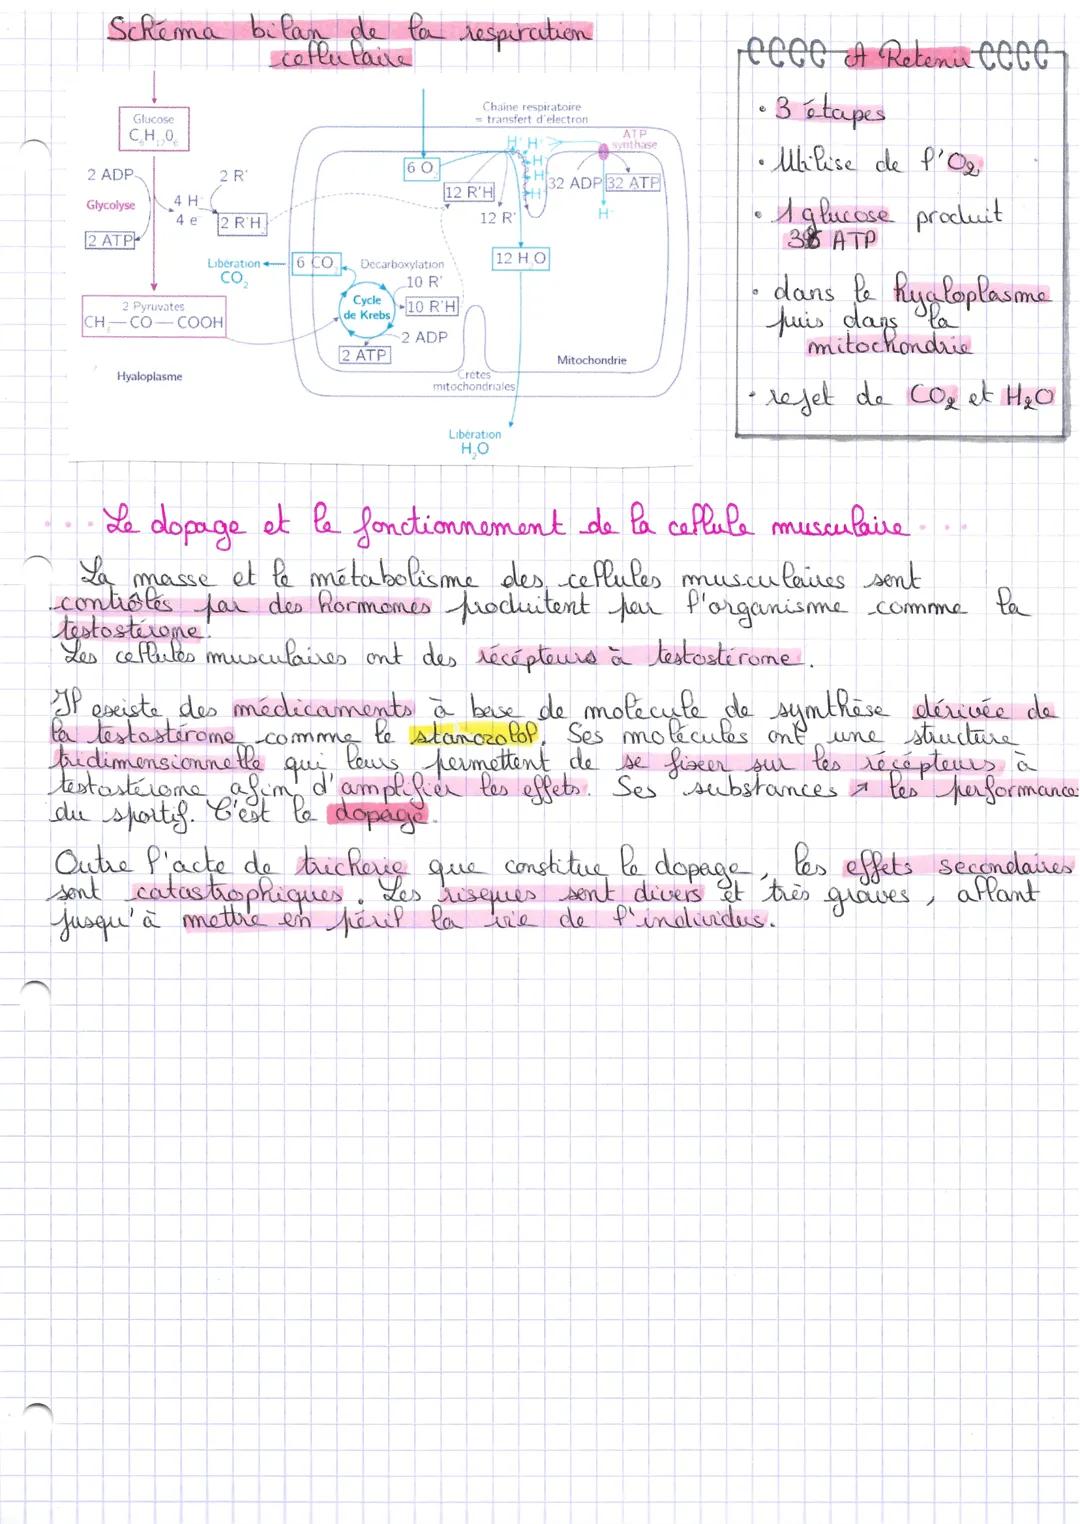 Schéma bilan de la respiration
cellulaire
Glucose
C6H12O6
2 ADP
2 R'
Glycolyse
4 H
4 e
2 R'H2
2 ATP
Libération
CO2
2 Pyruvates
CH3—CO—COOH
Hyaloplasme
Chaîne respiratoire
= transfert d'électron
ATP
synthase
H+ H+
H+
H+
H+
H+
6 O2
12 R'H2
32 ADP
32 ATP
12 R'
6 CO2
Décarboxylation
12 H2O
10 R'
Cycle
de Krebs
10 R'H2
2 ADP
2 ATP
Mitochondrie
Crêtes
mitochondriales
Libération
H2O
A Retenir
• 3 étapes
• Utilise de l'O2
• 1 glucose produit
36 ATP
• dans le hyaloplasme
puis dans la
mitochondrie
• rejet de CO2 et H2O
Le dopage et le fonctionnement de la cellule musculaire
La masse et le métabolisme des cellules musculaires sont
contrôlés par des hormones produitent par l'organisme comme la
testostérone.
Les cellules musculaires ont des récépteurs à testostérone.
Il existe des médicaments à base de molécule de synthèse dérivée de
la testostérone comme le stanozolol. Ses molécules ont une structure
tridimensionnelle qui leurs permettent de se fixer sur les récépteurs à
testostérone afin d'amplifier les effets. Ses substances ↗ les performances
du sportif. C'est le dopage.
Outre l'acte de tricherie que constitue le dopage, les effets secondaires
sont catastrophiques. Les risques sont divers et très graves, allant
jusqu'à mettre en péril la vie de l'individus.